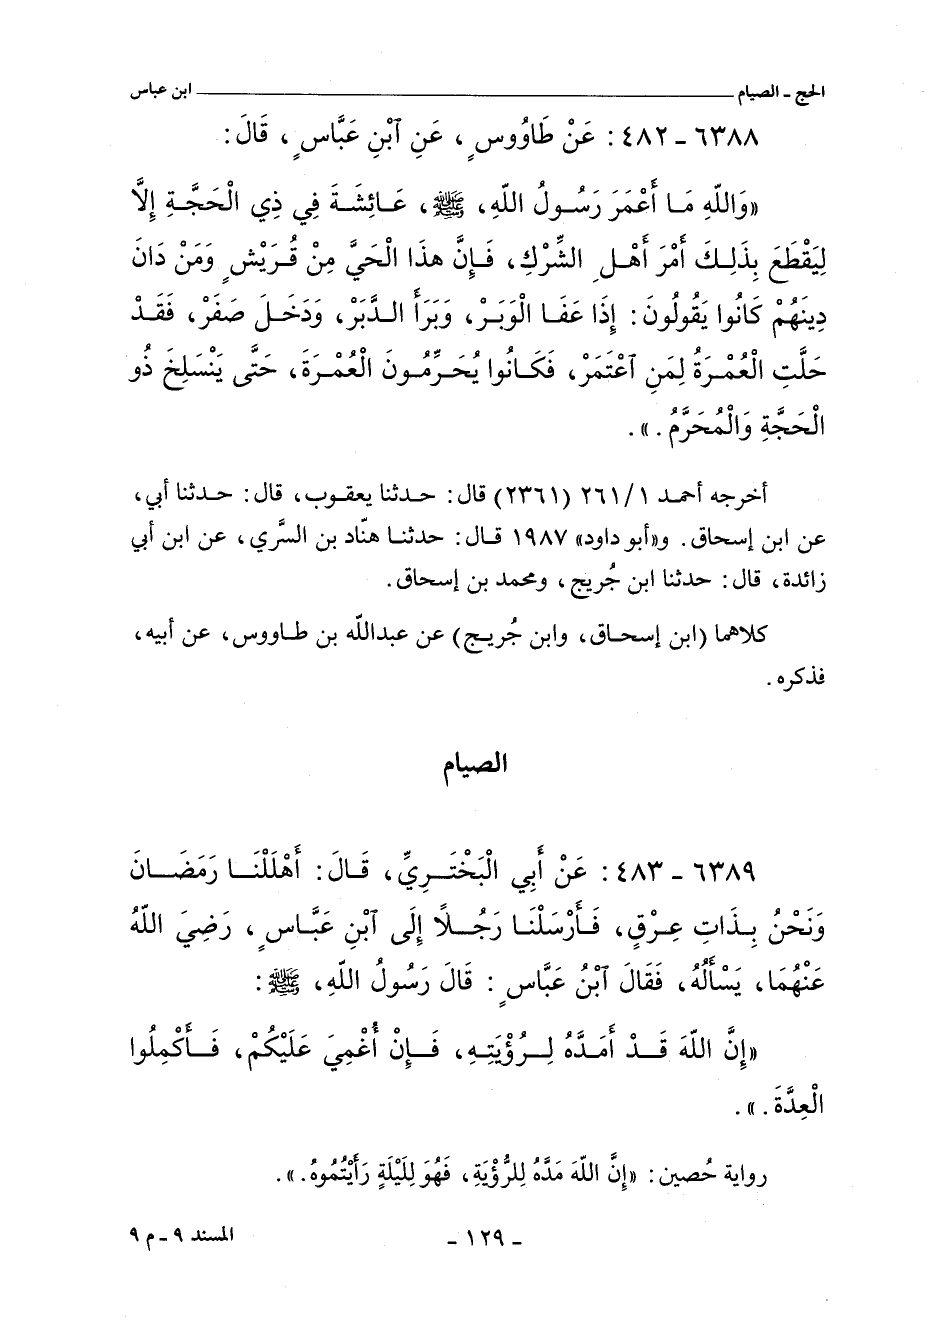 الحج - الصيام ــــــــــ ابن عباس
٦٣٨٨ - ٤٨٢ : عَنْ طَاوُوسٍ ، عَنِ آبْنِ عَبَّاسٍ ، قَالَ :
«وَاللّهِ مَا أَعْمَرَ رَسُولُ اللّهِ، ﷺ، عَائِشَةَ فِي ذِي الْحَجَّةِ إِلَّا
لِيَقْطَعَ بِذَلِكَ أَمْرَ أَهْلِ الشِّرْكِ، فَإِنَّ هذَا الْحَيَّ مِنْ قُرَيْشٍ وَمَنْ دَانَ
دِينَهُمْ كَانُوا يَقُولُونَ : إِذَا عَفَا الْوَبَرْ، وَبَرَأَ الدَّبَرْ، وَدَخَلَ صَفَرْ، فَقَدْ
حَلَّتِ الْعُمْرَةُ لِمَنِ آعْتَمَرْ، فَكَانُوا يُحَرِّمُونَ الْعُمْرَةَ، حَتَّى يَنْسَلِخَ ذُو
الْحَجَّةِ وَالْمُحَرَّمُ . ».
أخرجه أحمد ٢٦١/١ (٢٣٦١) قال : حدثنا يعقوب، قال : حدثنا أبي،
عن ابن إسحاق. و«أبو داود» ١٩٨٧ قال : حدثنا هنّاد بن السَّري، عن ابن أبي
زائدة، قال : حدثنا ابن جُريج، ومحمد بن إسحاق.
كلاهما (ابن إسحاق، وابن جُريج) عن عبدالله بن طاووس، عن أبيه،
فذكره .
الصيام
٦٣٨٩ - ٤٨٣ : عَنْ أَبِي الْبَخْتَرِيِّ، قَالَ : أَهْلَلْنَا رَمَضَانَ
وَنَحْنُ بِذَاتِ عِرْقٍ، فَأَرْسَلْنَا رَجُلًا إِلَى آبْنِ عَبَّاسٍ ، رَضِيَ اللّهُ
عَنْهُمَا، يَسْأَلُهُ، فَقَالَ آبْنُ عَبَّاسٍ : قَالَ رَسُولُ اللّهِ، ﷺ :
«إِنَّ اللّهَ قَدْ أَمَدَّهُ لِرُؤْيَتِهِ، فَإِنْ أُغْمِيَ عَلَيْكُمْ، فَأَكْمِلُوا
الْعِدَّةَ . ».
رواية حُصين : «إِنَّ اللّهَ مَدَّهُ لِلرُّؤْيَةِ، فَهُوَ لِلَيْلَةٍ رَأَيْتُمُوهُ . ».
- ١٢٩ - المسند ٩ - م ٩